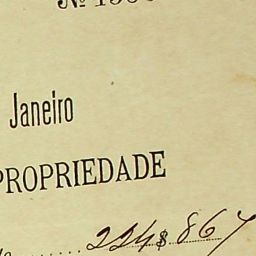 Nº
Janeiro
PROPRIEDADE
224$867